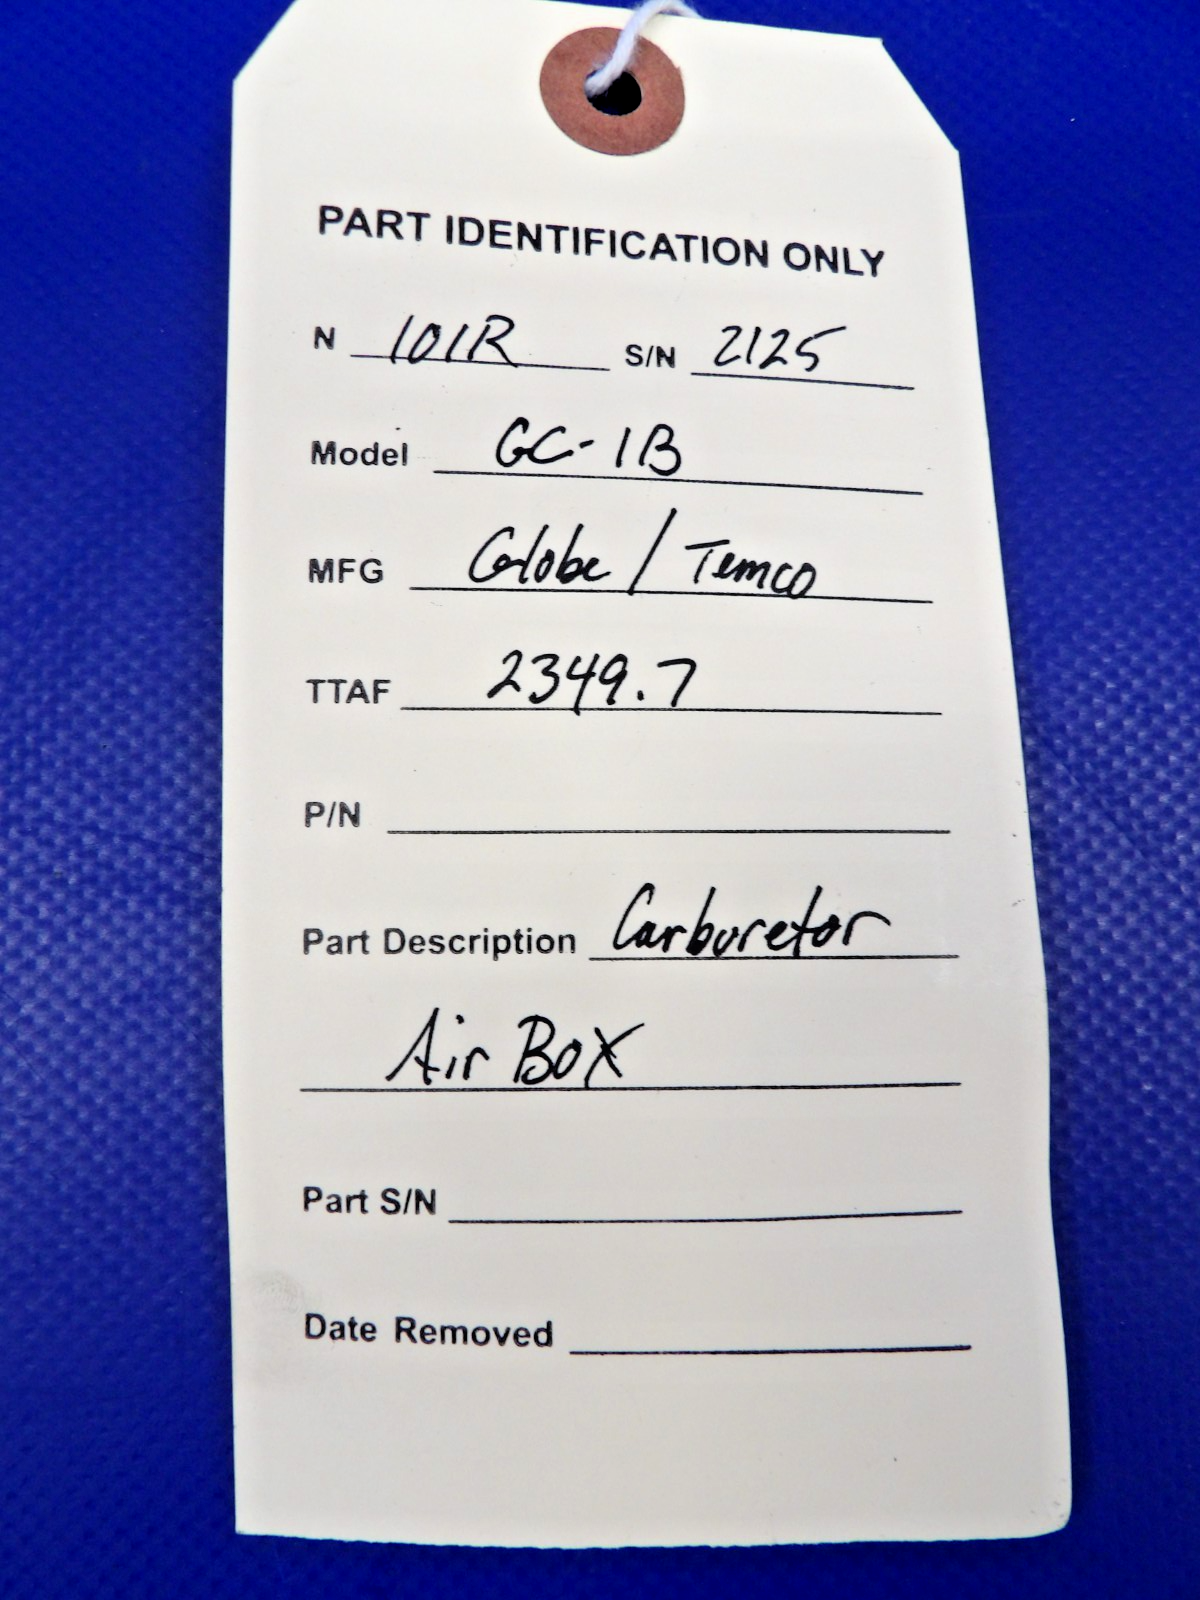 PART IDENTIFICATION ONLY
N 101R S/N 2125
Model GC-1B
MFG Globe / Temco
TTAF 2349.7
P/N
Part Description Carburetor
Air Box
Part S/N
Date Removed